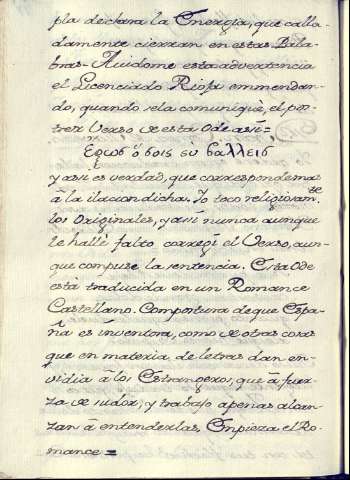 pla declara la Energia, que calla-
damente cierran en estas Pala-
bras. Auidome esta advertencia
el Licenciado Rioja emmendan-
do, quando se la comuniquè, el pos-
trer Verso de esta Ode asi=
Ερωσ ὁ δοις εὐ βαλλεισ
y asi es verdad, que corresponde mas
à la ilacion dicha. Yo toco religiosam.te
los Originales, y asi nunca aunque
le hallè falto corregi el Verso, aun-
que compuse la sentencia. Esta Ode
està traducida en un Romance
Castellano. Compostura de que Espa-
ña es inventora, como de otras cosas
que en materia de letras dan en-
vidia à los Estrangeros, que à fuer-
za de sudor, y trabajo apenas alcan-
zan à entenderlas, Empieza el Ro-
mance=